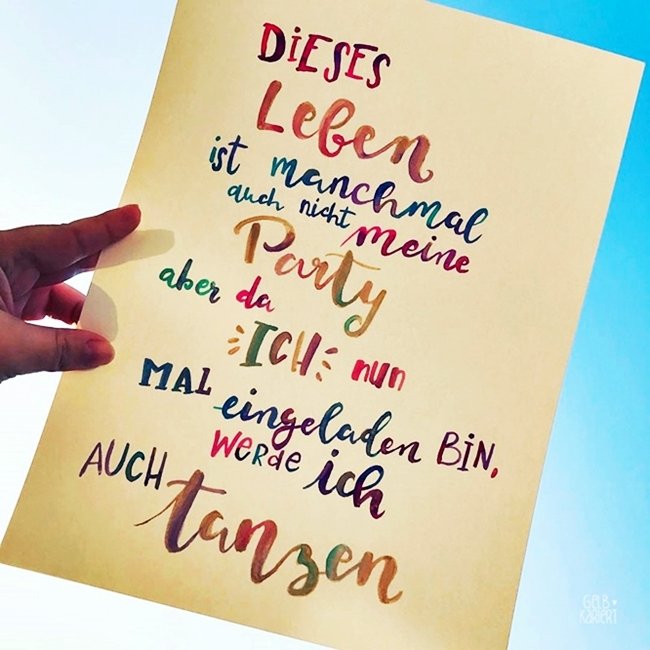 DiESES
Leben
ist manchmal
auch nicht meine
Party
aber da
ICH nun
MAL eingeladen BIN,
werde ich
AUCH tanzen
GELB♥
KARIERT